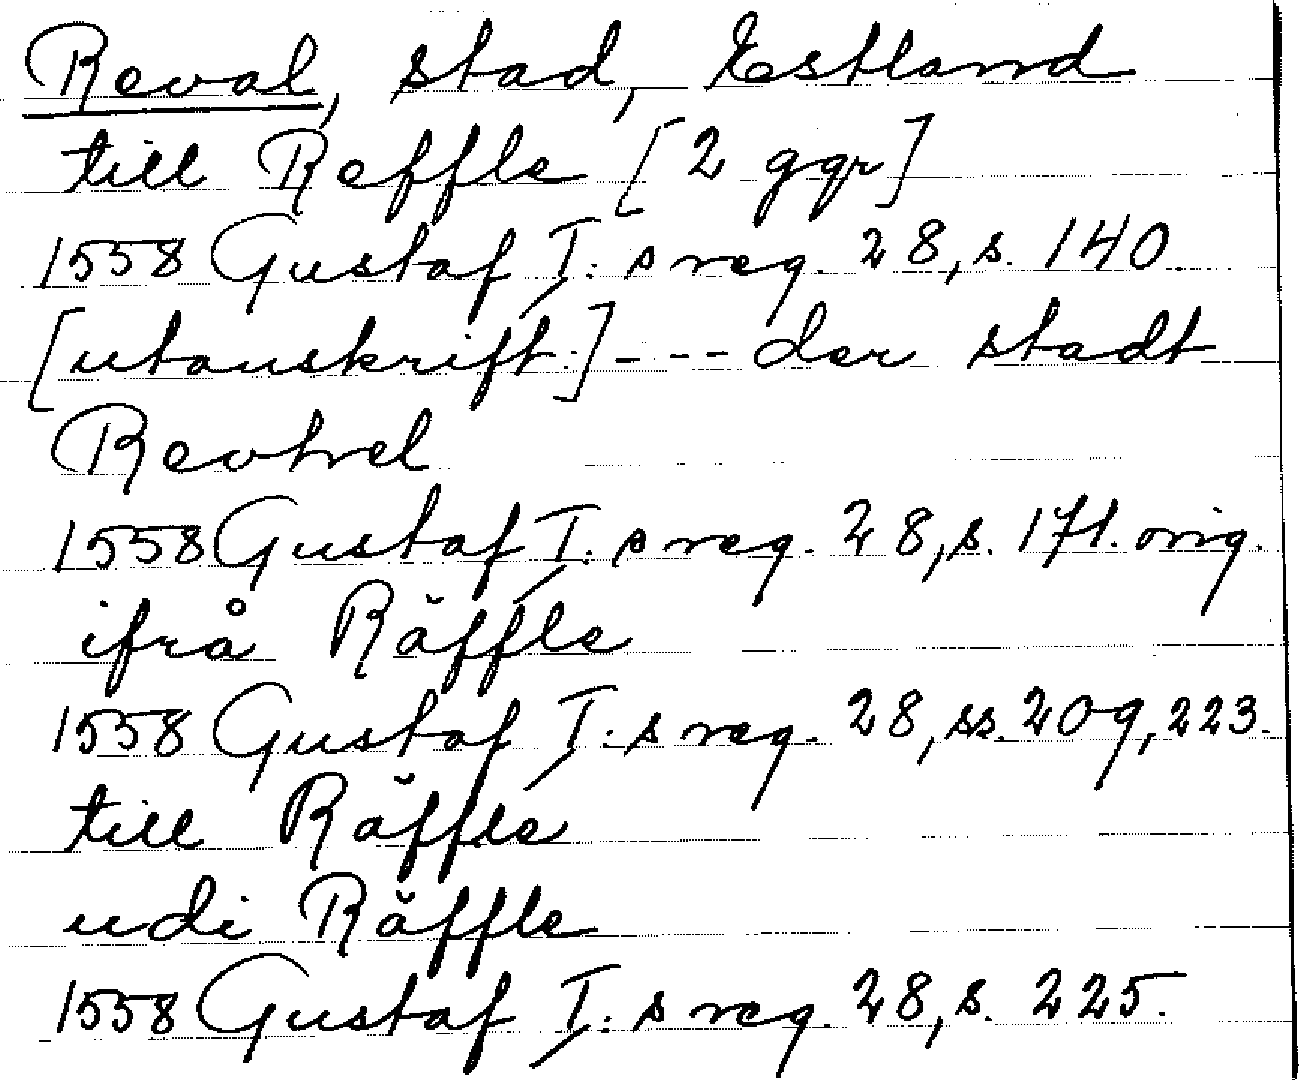 Reval, stad, Estland
till Reffle [2 ggr]
1558 Gustaf I:s reg. 28, s. 140
[utanskrift:] - - - der stadt
Revhel
1558 Gustaf I:s reg. 28, s. 171. orig.
ifrå Räffle
1558 Gustaf I:s reg. 28, ss. 209, 223.
till Räffle
udi Räffle
1558 Gustaf I:s reg. 28, s. 225.